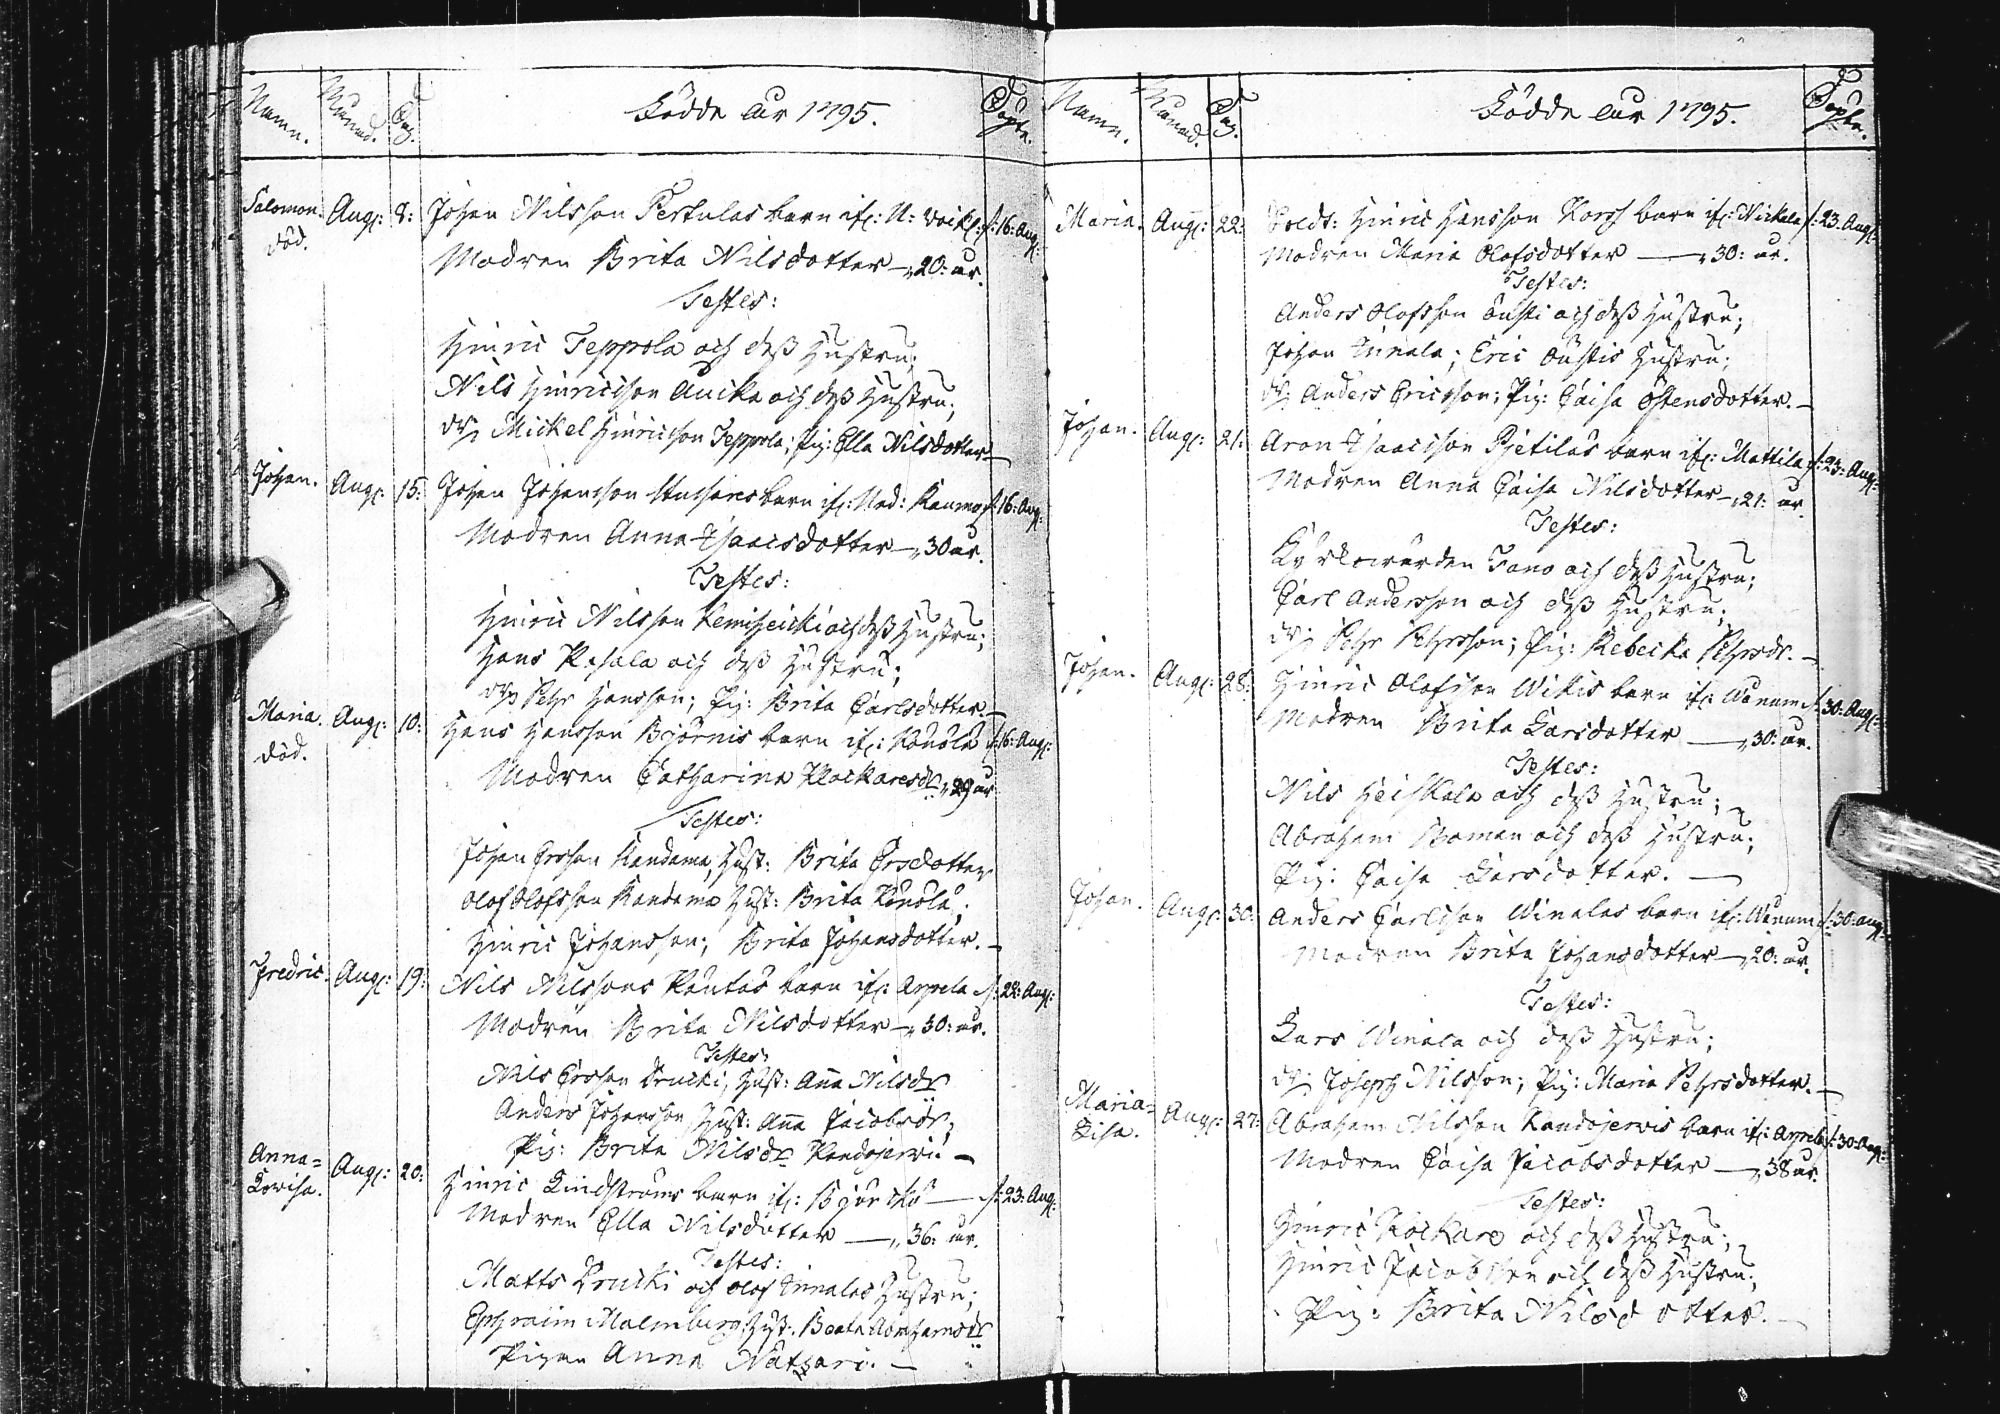 Namn. Månad. Dag. Födde åar 1795. Döpte.
Salomon. Aug: 8: Johan Nilsson Perkulas barn if: N: Voik: d: 16: Aug:
död. Modren Brita Nilsdotter — 20: år.
Testes:
Hinric Teppola och dess Hustru;
Nils Hinricsson Auika och dess Hustru;
Dr: Mickel Hinricsson Teppola; Pig: Ella Nilsdotter —
Johan. Aug: 15: Johan Johansson barn if: Ned: Raumo d: 16: Aug:
Modren Anna Isaacsdotter — 30 år.
Testes:
Hinric Nilsson Kemiheicki och dess Hustru;
Hans och dess Hustru;
Dr: Pehr Hansson; Pig: Brita Carlsdotter. —
Maria. Aug: 10: Hans Hansson Björnis barn if: d: 16: Aug:
död. Modren Catharina Klockaresdr. 29 år
Testes:
Johan Ersson Kandama, Hust: Brita Ersdotter
Olof Olofsson Kandama Hust: Brita
Hinric Johansson; Brita Johansdotter. —
Fredric. Aug: 19: Nils Nilssons Rautas barn if: Arpela d: 22: Aug:
Modren Brita Nilsdotter — 30: år.
Testes
Nils Ersson Drucki; Hust: Anna Nilsdr
Anders Johansson Hust: Anna Jacobsdr;
Pig: Brita Nilsdr Kandojerwi —
Anna= Aug: 20: Hinric Lindströms barn if: Björckö — d: 23: Aug:
Lovisa. Modren Ella Nilsdotter — 36: år.
Testes:
Matts Drucki och Olof Innalas Hustru;
Ephraim Malmberg Hust. Beata Abrahamsdr
Pigan Anna —
Namn. Månad. Dag. Födde åar 1795. Döpte.
Maria. Aug: 22: Soldt: Hinric Hansson Kors barn if: Nickala d: 23 Aug:
Modren Maria Olofsdotter — 30: år.
Testes:
Anders Olofsson Ousti och dess Hustru;
Johan Innala; Eric Oustis Hustru;
Dr: Anders Ericsson; Pig: Caisa Östensdotter. —
Johan. Aug: 21: Aron Isaacsson Pjetilas barn if: Mattila d: 23: Aug:
Modren Anna Caisa Nilsdotter — 21: år.
Testes:
Kyrkowärden Tano och dess Hustru;
Carl Andersson och dess Hustru;
Dr: Pehr Pehrsson; Pig: Rebecka Pehrsdr. —
Johan. Aug: 28: Hinric Olofsson Wikis barn if: Wånam d: 30: Aug:
Modren Brita Larsdotter — 30: år.
Testes:
Nils Heickala och dess Hustru;
Abraham Boman och dess Hustru;
Pig: Caisa Larsdotter. —
Johan. Aug: 30: Anders Carlsson Winalas barn if: Wånam d: 30: aug:
Modren Brita Johansdotter — 20: år.
Testes:
Lars Winala och dess Hustru;
Dr: Joseph Nilsson; Pig: Maria Pehrsdotter. —
Maria= Aug: 27: Abraham Nilsson Kandojerwis barn if: Arpela d: 30: Aug:
Lisa. Modren Caisa Jacobsdotter — 38 år.
Testes:
Hinric och dess Hustru;
Hinric Jacobsson och dess Hustru;
Pig: Brita Nilsdotter. —